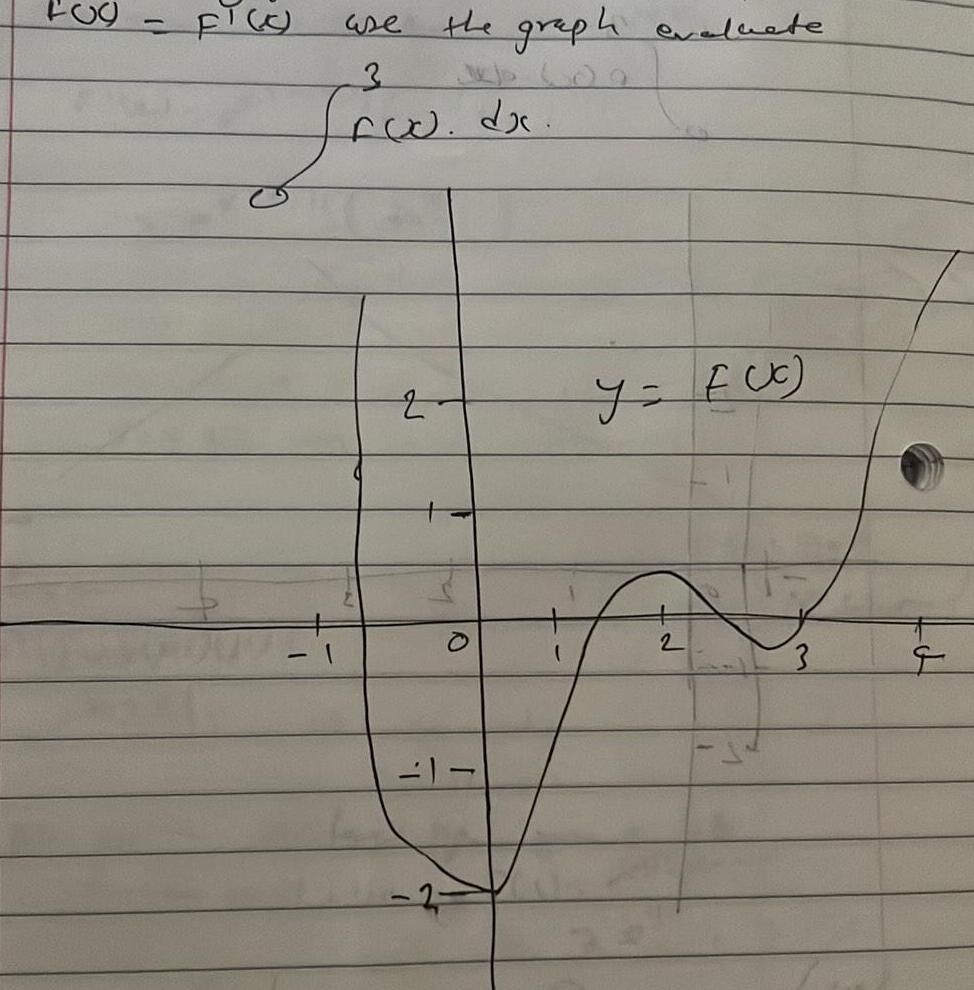 F(x) = F'(x) use the graph evaluate
3
F(x). dx.
0
2
y = F(x)
1
-1 0 1 2 3 4
-1
-2